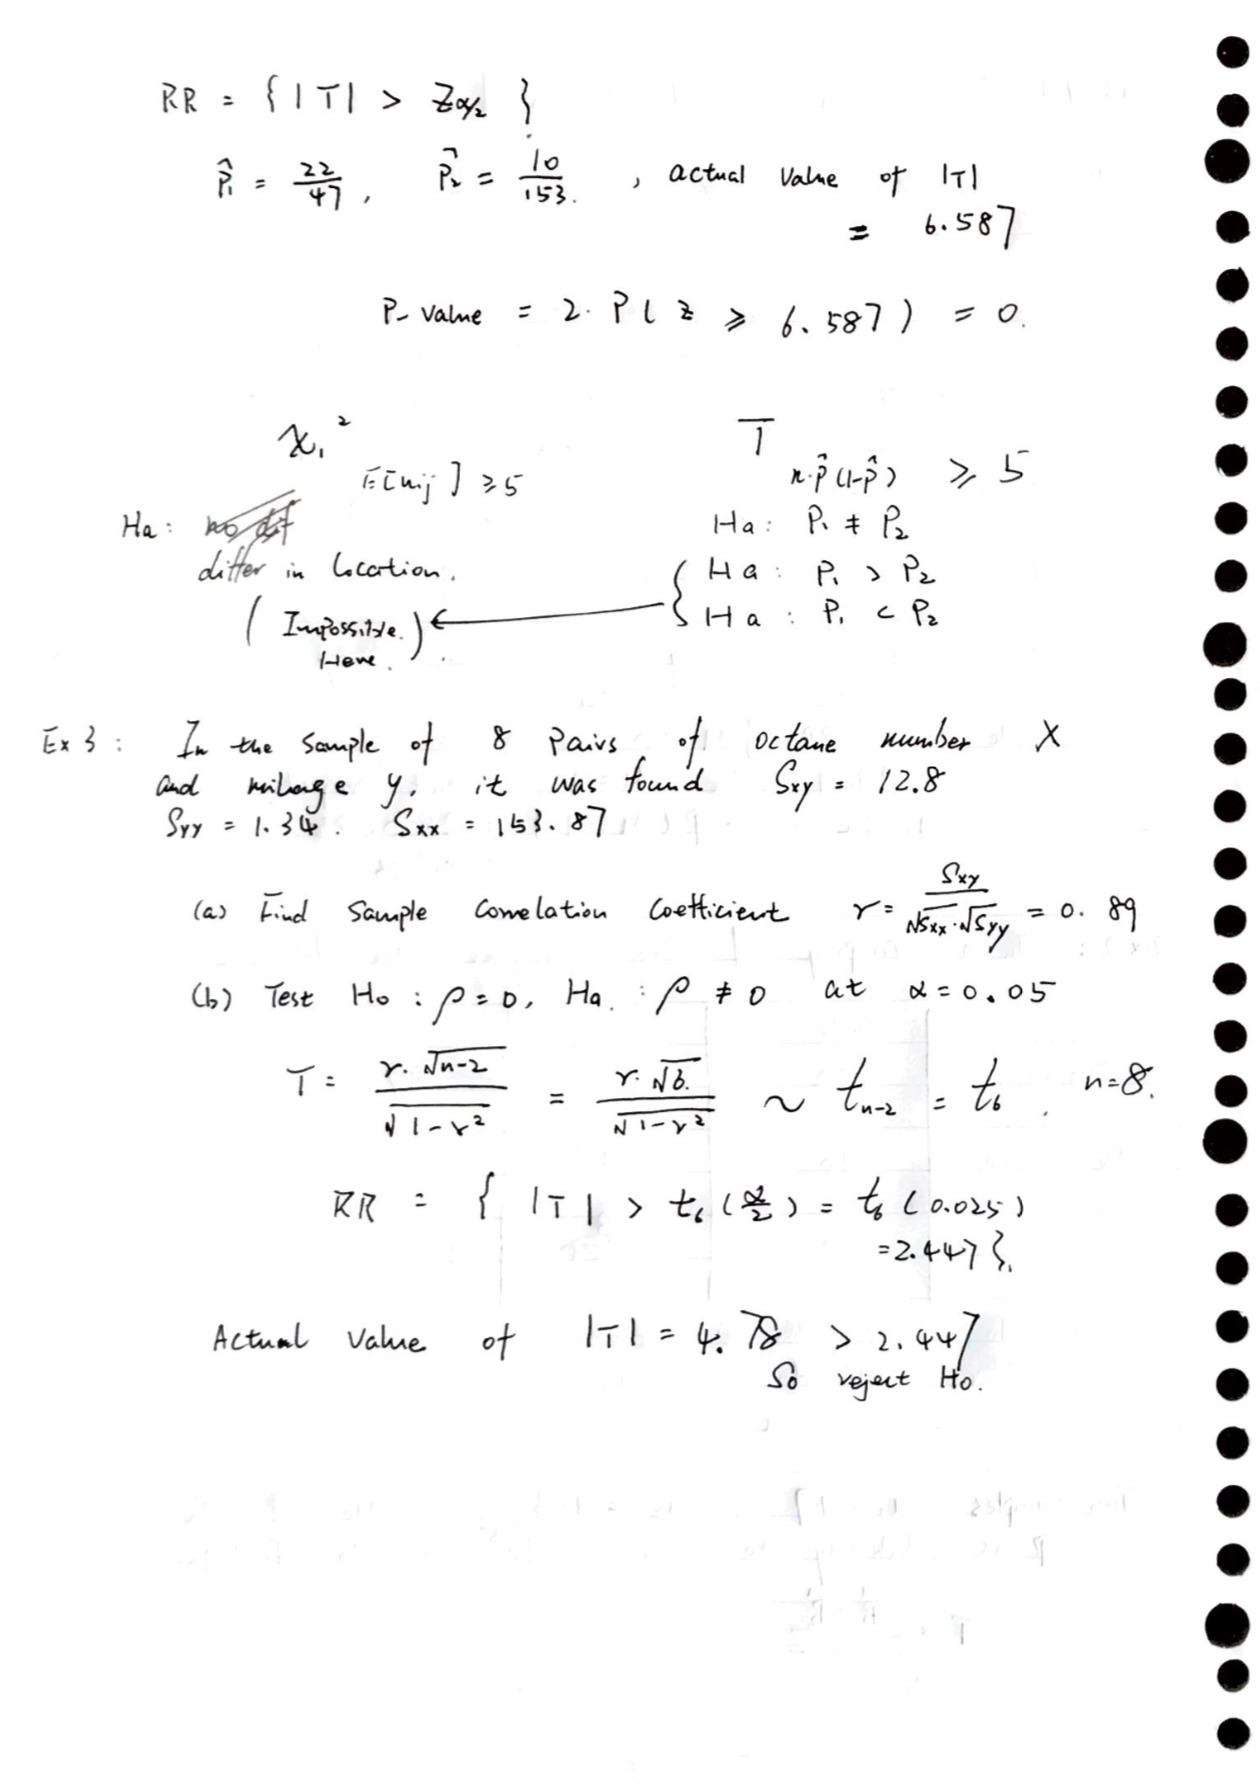 RR = { |T| > Zα/2 }
p̂₁ = 22/47, p̂₂ = 10/153. , actual value of |T|
= 6.587
P-value = 2. P( z ≥ 6.587) = 0.
χ₁² T
E[nij] ≥ 5 n·p̂(1-p̂) ≥ 5
Ha: no dif Ha: P₁ ≠ P₂
differ in location. { Ha: P₁ > P₂
(Impossible. Here.) ← Ha: P₁ < P₂
Ex 3: In the sample of 8 pairs of octane number X
and milage y, it was found Sxy = 12.8
Syy = 1.34. Sxx = 153.87
(a) Find sample correlation coefficient r = Sxy/√Sxx·√Syy = 0.89
(b) Test Ho: ρ=0, Ha: ρ ≠ 0 at α=0.05
T = r·√n-2/√1-r² = r·√6./√1-r² ~ tn-2 = t6. n=8.
RR = { |T| > t6(α/2) = t6(0.025)
=2.447}.
Actual value of |T| = 4.78 > 2.447
So reject Ho.